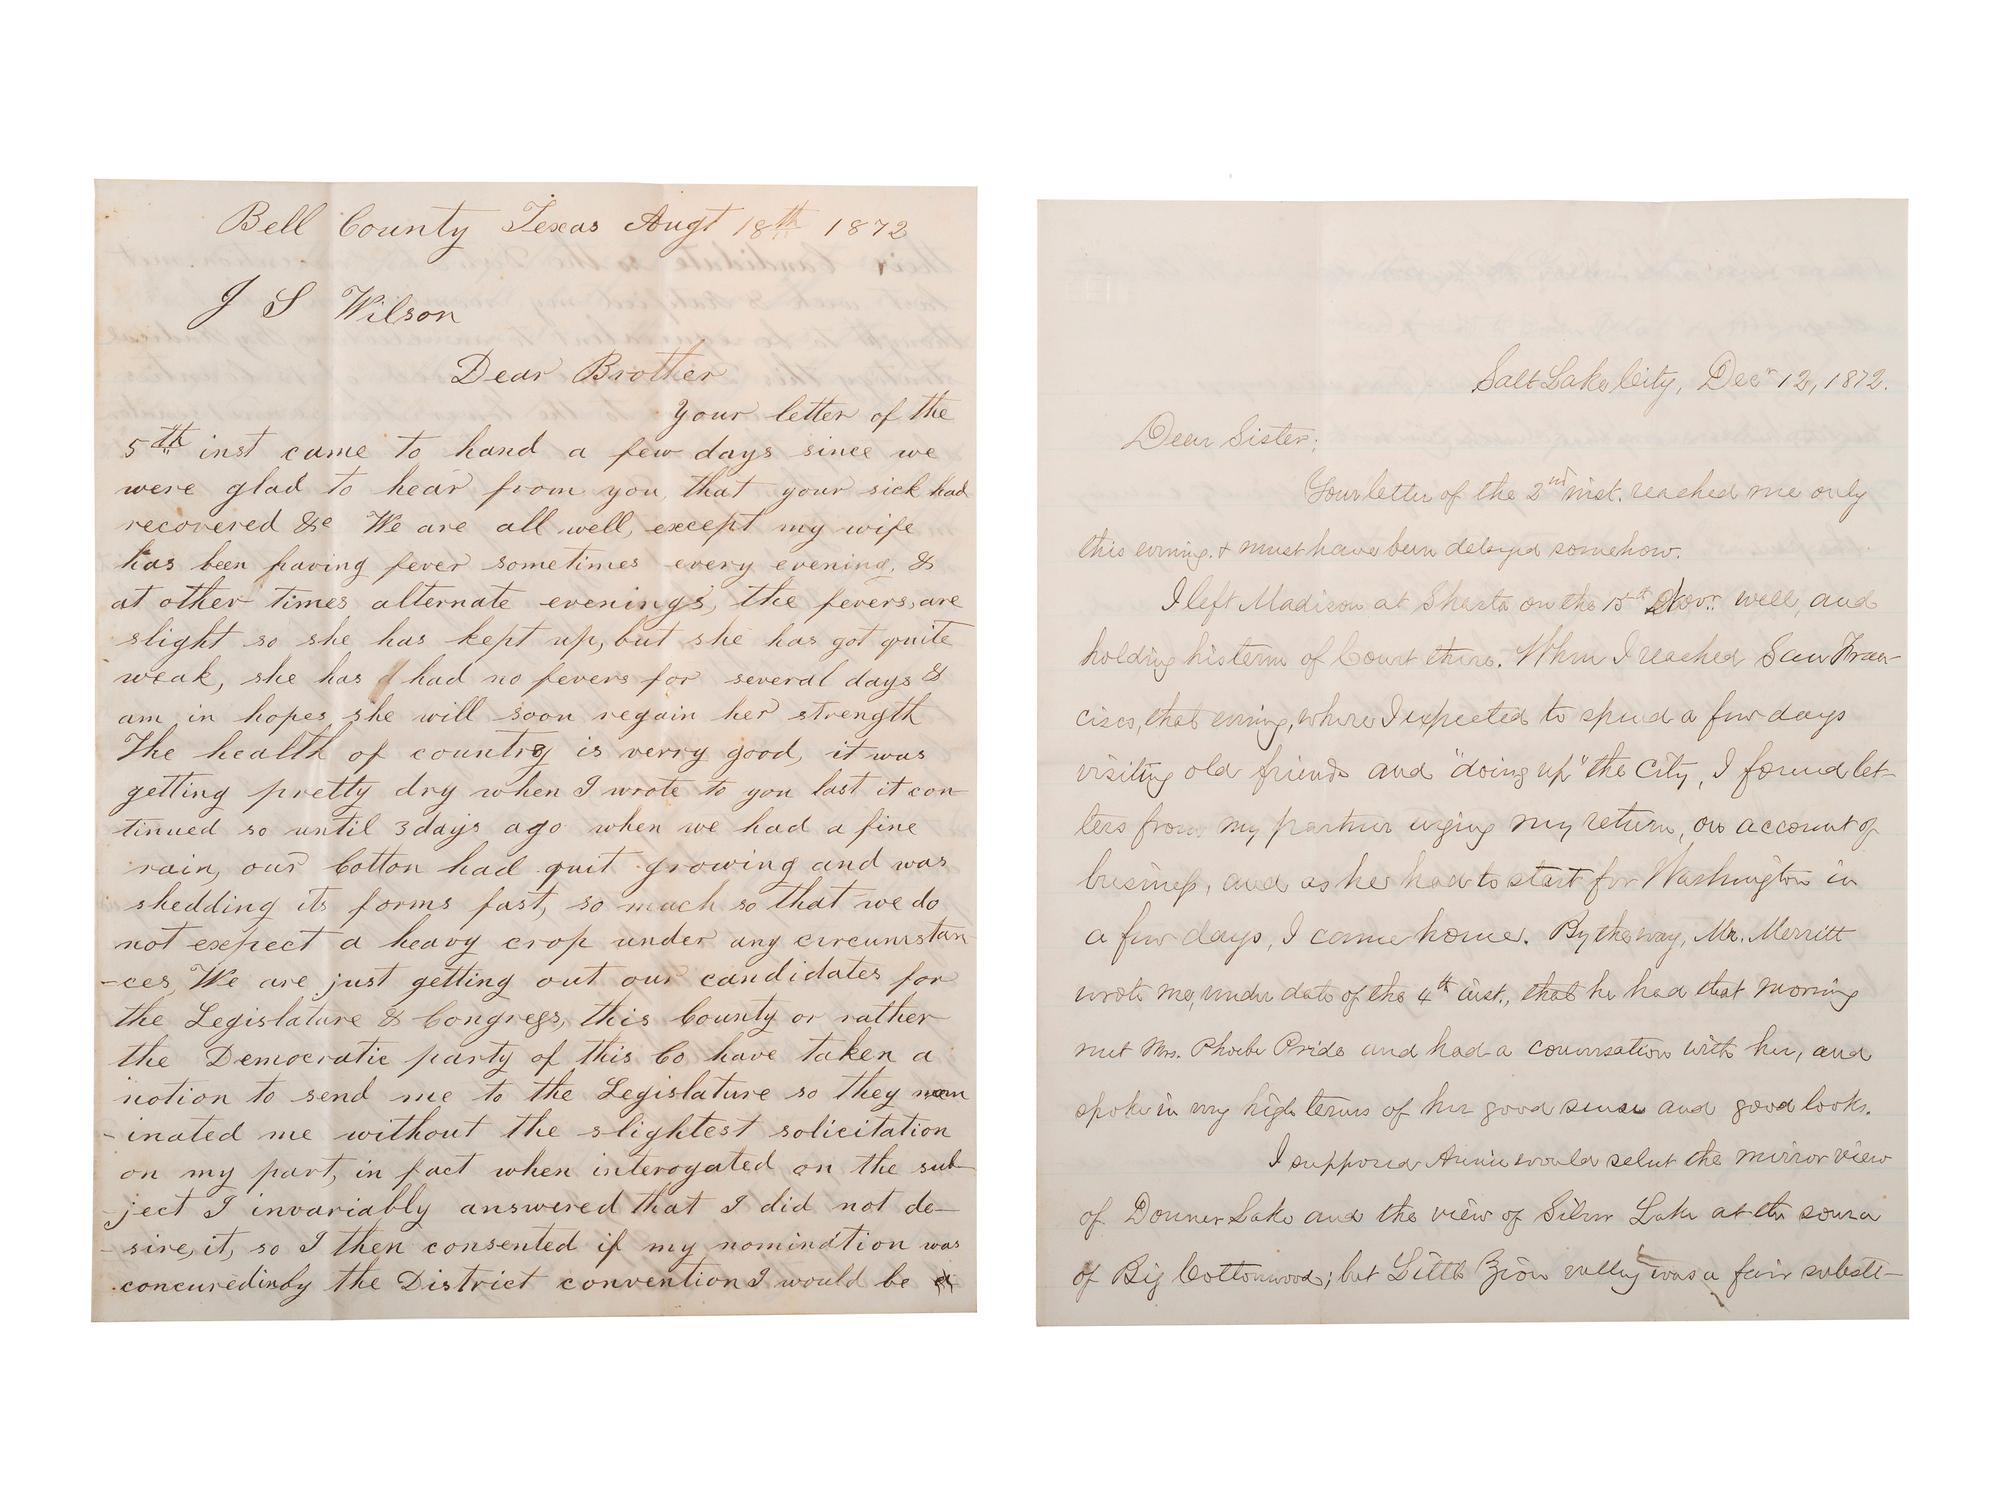 Bell County Texas Augt 18th 1872
J S Wilson
Dear Brother
Your letter of the
5th inst came to hand a few days since we
were glad to hear from you, that your sick had
recovered &c We are all well, except my wife
has been having fever sometimes every evening, &
at other times alternate evenings, the fevers are
slight so she has kept up, but she has got quite
weak, she has had no fevers for several days &
am in hopes she will soon regain her strength
The health of country is verry good, it was
getting pretty dry when I wrote to you last it con-
tinued so until 3 days ago when we had a fine
rain, our Cotton had quit growing and was
shedding its forms fast, so much so that we do
not expect a heavy crop under any circumstan-
-ces, We are just getting out our candidates for
the Legislature & Congress, this County or rather
the Democratic party of this Co have taken a
notion to send me to the Legislature so they nom
-inated me without the slightest solicitation
on my part, in fact when interogated on the sub-
-ject I invariably answered that I did not de-
-sire, it, so I then consented if my nomination was
concured in by the District convention I would be
Salt Lake City, Decr 12, 1872.
Dear Sister;
Your letter of the 2nd inst. reached me only
this evening. & must have been delayed somehow.
I left Madison at Shasta on the 15th Novr. well, and
holding his term of Court there. When I reached San Fran-
cisco, that evening, where I expected to spend a few days
visiting old friends and "doing up" the City, I found let-
ters from my partner urging my return, on account of
business, and as he had to start for Washington in
a few days, I came home. By the way, Mr. Merritt
wrote me, under date of the 4th inst., that he had that morning
met Mrs. Phoebe Pride and had a conversation with her, and
spoke in very high terms of her good sense and good looks.
I supposed Annie would select the mirror view
of Donner Lake and the view of Silver Lake at the source
of Big Cottonwood; but Little Zion valley was a fair substi-